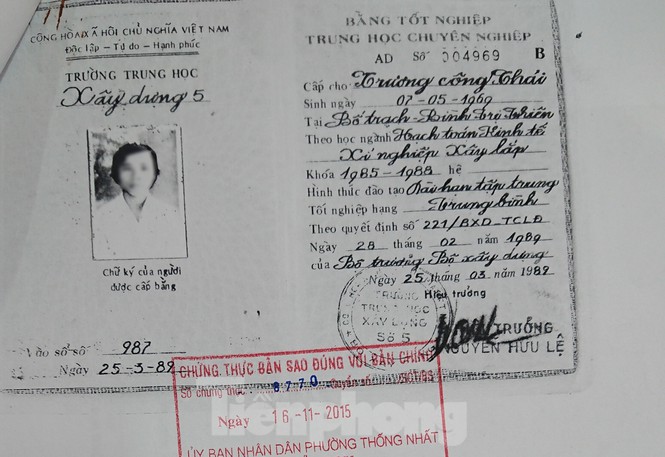 CỘNG HÒA XÃ HỘI CHỦ NGHĨA VIỆT NAM
Độc lập - Tự do - Hạnh phúc
TRƯỜNG TRUNG HỌC
Xây dựng 5
Chữ ký của người
được cấp bằng
Vào sổ số 987
Ngày 25-3-89
BẰNG TỐT NGHIỆP
TRUNG HỌC CHUYÊN NGHIỆP
AD Số 004969 B
Cấp cho Trương Công Thái
Sinh ngày 07-05-1969
Tại Bố trạch - Bình Trị Thiên
Theo học ngành Hạch toán Kinh tế
Xí nghiệp Xây lắp
Khóa 1985-1988 hệ
Hình thức đào tạo Dài hạn tập trung
Tốt nghiệp hạng Trung bình
Theo quyết định số 221/BXD_TCLĐ
Ngày 28 tháng 02 năm 1989
của Bộ trưởng Bộ xây dựng
Ngày 25 tháng 03 năm 1989
Hiệu trưởng
TRƯỜNG
TRUNG HỌC
XÂY DỰNG
SỐ 5
TRƯỞNG
NGUYỄN HỮU LỆ
CHỨNG THỰC BẢN SAO ĐÚNG VỚI BẢN CHÍNH
Số chứng thực 8770 Quyển số
Ngày 16-11-2015
tiền phong
ỦY BAN NHÂN DÂN PHƯỜNG THỐNG NHẤT